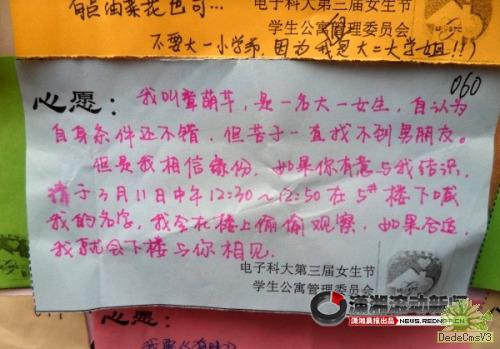 电子科大第三届女生节
学生公寓管理委员会
不要大一小学弟,因为我是大二大学姐!!)
060
心愿:
我叫章萌芊,是一名大一女生,自认为
自身条件还不错,但苦于一直找不到男朋友。
但是我相信缘份,如果你有意与我结识,
请于3月11日中午12:30~12:50在5#楼下喊
我的名字,我会在楼上偷偷观察,如果合适,
我就会下楼与你相见。
电子科大第三届女生节
学生公寓管理委员会
潇湘滚动新闻
潇湘晨报出品
NEWS.REDNET.CN
心愿:
DedeCmsV3